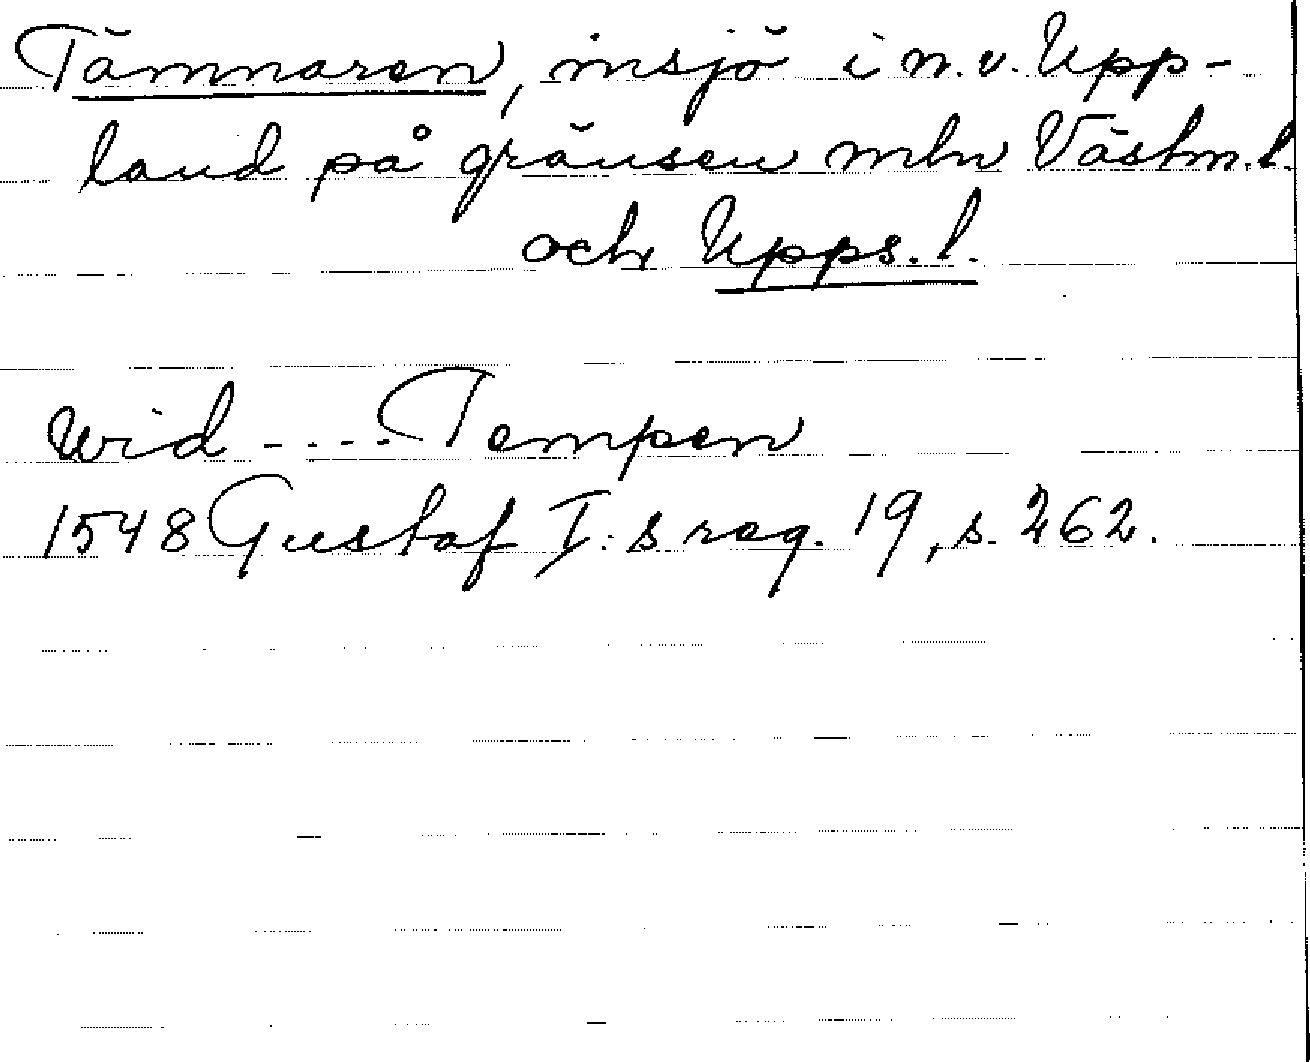 Tämnaren, insjö i n.v. Upp-
land på gränsen mln Västm.l.
och Upps.l.
wid ---- Tempen
1548 Gustaf I:s reg. 19, s. 262.